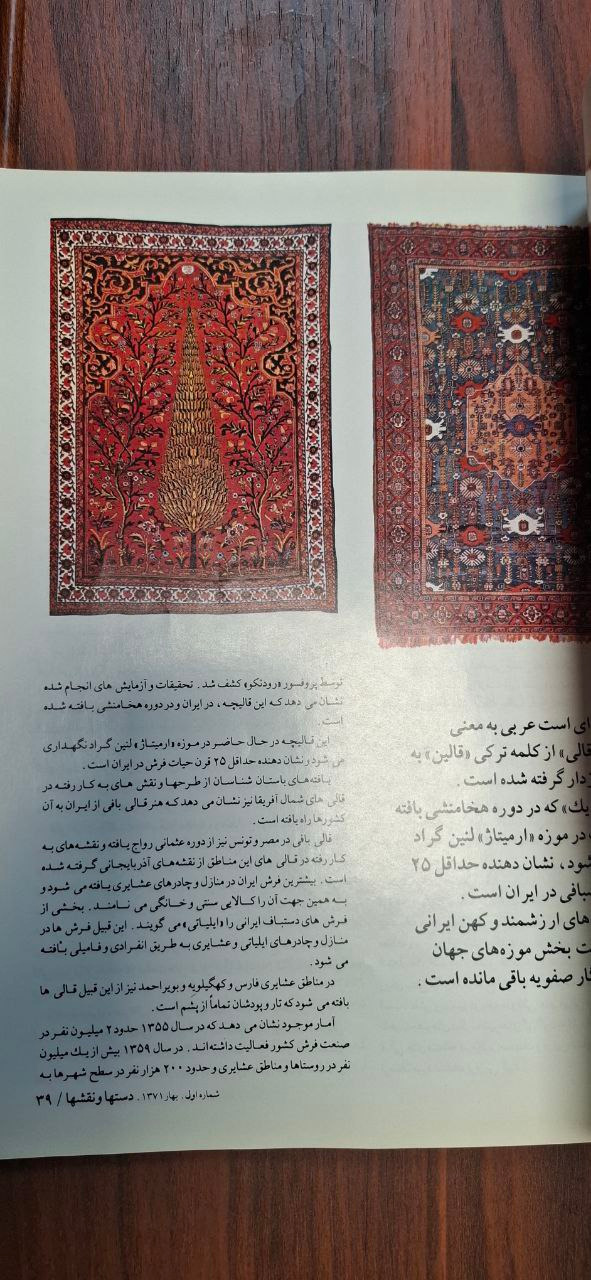 توسط پروفسور «رودنکو» کشف شد . تحقیقات و آزمایش های انجام شده
نشان می دهد که این قالیچه ، در ایران و در دوره هخامنشی بافته شده
است .
این قالیچه در حال حاضر در موزه «ارمیتاژ» لنین گراد نگهداری
می شود و نشان دهنده حداقل ۲۵ قرن حیات فرش در ایران است .
یافته‌های باستان شناسان از طرحها و نقش های به کار رفته در
قالی های شمال آفریقا نیز نشان می دهد که هنر قالی بافی از ایران به آن
کشورها راه یافته است .
قالی بافی در مصر و تونس نیز از دوره عثمانی رواج یافته و نقشه‌های به
کار رفته در قالی های این مناطق از نقشه‌های آذربایجانی گرفته شده
است . بیشترین فرش ایران در منازل و چادرهای عشایری بافته می شود و
به همین جهت آن را کالایی سنتی و خانگی می نامند . بخشی از
فرش های دستباف ایرانی را «ایلیاتی» می گویند . این قبیل فرش ها در
منازل و چادرهای ایلیاتی و عشایری به طریق انفرادی و فامیلی بافته
می شود .
در مناطق عشایری فارس و کهگیلویه و بویراحمد نیز از این قبیل قالی ها
بافته می شود که تار و پودشان تماماً از پشم است .
آمار موجود نشان می دهد که در سال ۱۳۵۵ حدود ۲ میلیون نفر در
صنعت فرش کشور فعالیت داشته‌اند . در سال ۱۳۵۹ بیش از یك میلیون
نفر در روستاها و مناطق عشایری و حدود ۲۰۰ هزار نفر در سطح شهرها به
ای است عربی به معنی
قالی» از کلمه ترکی «قالین» به
زدار گرفته شده است .
یك» که در دوره هخامنشی بافته
در موزه «ارمیتاژ» لنین گراد
شود ، نشان دهنده حداقل ۲۵
سبافی در ایران است .
های ارزشمند و کهن ایرانی
ت بخش موزه‌های جهان
گار صفویه باقی مانده است .
شماره اول . بهار ۱۳۷۱ . دستها و نقشها / ۳۹